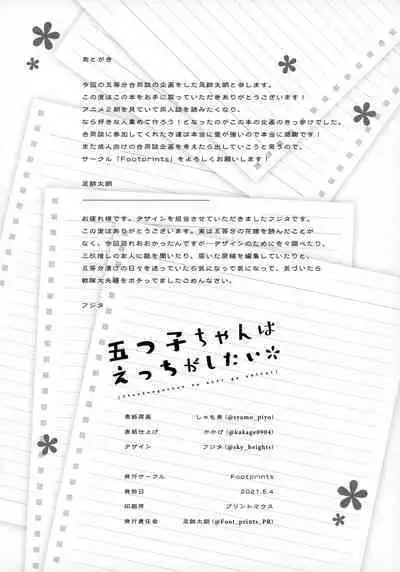 あとがき
今回の五等分合同誌の企画をした足跡太朗と申します。
この度はこの本をお手に取っていただきありがとうございます!
アニメ2期を見ていて成人誌を読みたくなり、
なら好きな人集めて作ろう!となったのがこの本の企画のきっかけでした。
合同誌に参加してくれた方達は本当に愛が強いので本当に感謝です!
また成人向けの合同誌企画を考えたら出していこうと思うので、
サークル「Footprints」をよろしくお願いします!
足跡太朗
お疲れ様です。デザインを担当させていただきましたフジタです。
この度はありがとうございます。実は五等分の花嫁を読んだことが
なく、今回恐れおおかったんですが…デザインのために色々調べたり、
三玖推しの友人に話を聞いたり、届いた原稿を編集していたりと、
五等分漬けの日々を送っていたら気になって気になって、気づいたら
戦隊大失格をポチってましたごめんなさい。
フジタ
五つ子ちゃんは
えっちがしたい
表紙原画 しゃも美(@syamo_piyo)
表紙仕上げ かかげ(@kakage0904)
デザイン フジタ(@sky_heights)
発行サークル Footprints
発行日 2021.5.4
印刷所 プリントマウス
発行責任者 足跡太朗(@Foot_prints_PR)